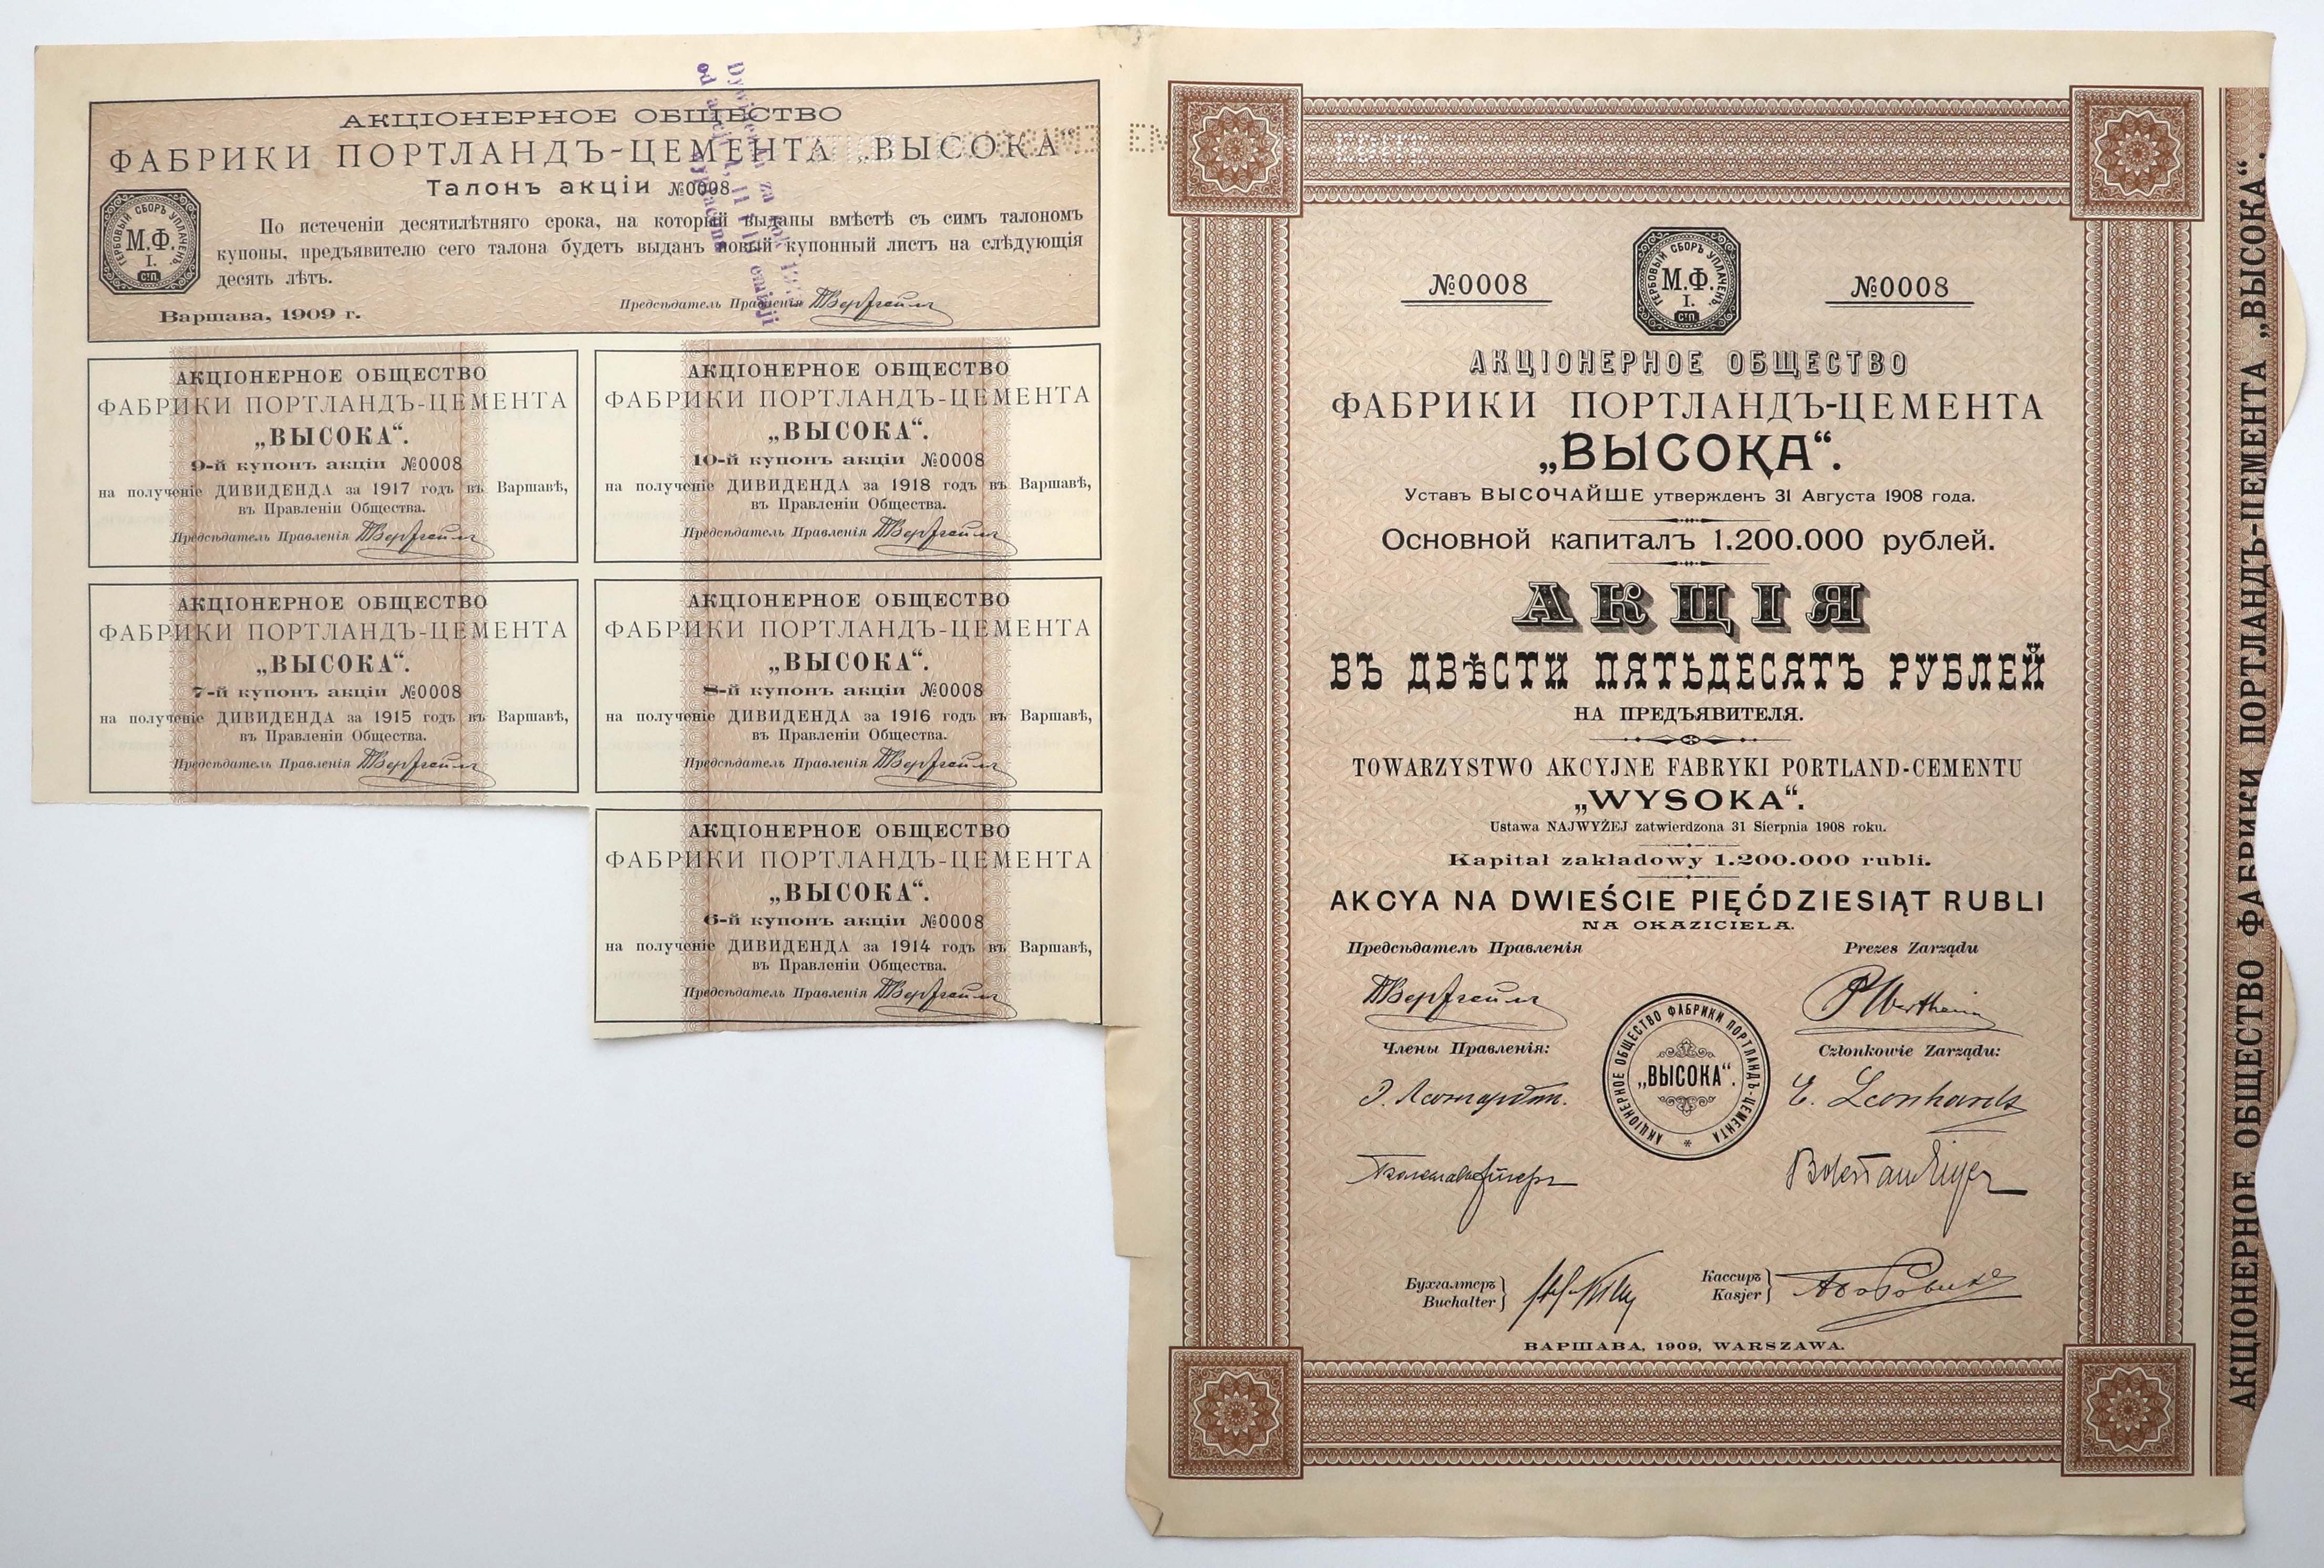 АКЦІОНЕРНОЕ ОБЩЕСТВО
ФАБРИКИ ПОРТЛАНДЪ-ЦЕМЕНТА „ВЫСОКА“.
Талонъ акціи №0008
ГЕРБОВЫЙ СБОРЪ УПЛАЧЕНЪ.
М.Ф.
I.
СП.
По истеченіи десятилѣтняго срока, на который выданы вмѣстѣ съ симъ талономъ
купоны, предъявителю сего талона будетъ выданъ новый купонный листъ на слѣдующія
десять лѣтъ.
Предсѣдатель Правленія
Варшава, 1909 г.
АКЦІОНЕРНОЕ ОБЩЕСТВО
ФАБРИКИ ПОРТЛАНДЪ-ЦЕМЕНТА
„ВЫСОКА“.
9-й купонъ акціи №0008
на полученіе ДИВИДЕНДА за 1917 годъ въ Варшавѣ,
въ Правленіи Общества.
Предсѣдатель Правленія
АКЦІОНЕРНОЕ ОБЩЕСТВО
ФАБРИКИ ПОРТЛАНДЪ-ЦЕМЕНТА
„ВЫСОКА“.
10-й купонъ акціи №0008
на полученіе ДИВИДЕНДА за 1918 годъ въ Варшавѣ,
въ Правленіи Общества.
Предсѣдатель Правленія
АКЦІОНЕРНОЕ ОБЩЕСТВО
ФАБРИКИ ПОРТЛАНДЪ-ЦЕМЕНТА
„ВЫСОКА“.
7-й купонъ акціи №0008
на полученіе ДИВИДЕНДА за 1915 годъ въ Варшавѣ,
въ Правленіи Общества.
Предсѣдатель Правленія
АКЦІОНЕРНОЕ ОБЩЕСТВО
ФАБРИКИ ПОРТЛАНДЪ-ЦЕМЕНТА
„ВЫСОКА“.
8-й купонъ акціи №0008
на полученіе ДИВИДЕНДА за 1916 годъ въ Варшавѣ,
въ Правленіи Общества.
Предсѣдатель Правленія
АКЦІОНЕРНОЕ ОБЩЕСТВО
ФАБРИКИ ПОРТЛАНДЪ-ЦЕМЕНТА
„ВЫСОКА“.
6-й купонъ акціи №0008
на полученіе ДИВИДЕНДА за 1914 годъ въ Варшавѣ,
въ Правленіи Общества.
Предсѣдатель Правленія
№0008
ГЕРБОВЫЙ СБОРЪ УПЛАЧЕНЪ.
М.Ф.
I.
СП.
№0008
АКЦІОНЕРНОЕ ОБЩЕСТВО
ФАБРИКИ ПОРТЛАНДЪ-ЦЕМЕНТА
„ВЫСОКА“.
Уставъ ВЫСОЧАЙШЕ утвержденъ 31 Августа 1908 года.
Основной капиталъ 1.200.000 рублей.
АКЦІЯ
ВЪ ДВѢСТИ ПЯТЬДЕСЯТЪ РУБЛЕЙ
НА ПРЕДЪЯВИТЕЛЯ.
TOWARZYSTWO AKCYJNE FABRYKI PORTLAND-CEMENTU
„WYSOKA“.
Ustawa NAJWYŻEJ zatwierdzona 31 Sierpnia 1908 roku.
Kapitał zakładowy 1.200.000 rubli.
AKCYA NA DWIEŚCIE PIĘĆDZIESIĄT RUBLI
NA OKAZICIELA.
Предсѣдатель Правленія
Prezes Zarządu
P Wertheim
Члены Правленія:
Członkowie Zarządu:
АКЦІОНЕРНОЕ ОБЩЕСТВО ФАБРИКИ ПОРТЛАНДЪ-ЦЕМЕНТА
„ВЫСОКА“.
Э. Леонгардтъ.
E. Leonhardt
Болеславъ Эйгеръ
Bolesław Eiger
Бухгалтеръ
Buchalter
Кассиръ
Kasjer
ВАРШАВА, 1909, WARSZAWA.
АКЦІОНЕРНОЕ ОБЩЕСТВО ФАБРИКИ ПОРТЛАНДЪ-ЦЕМЕНТА „ВЫСОКА“.